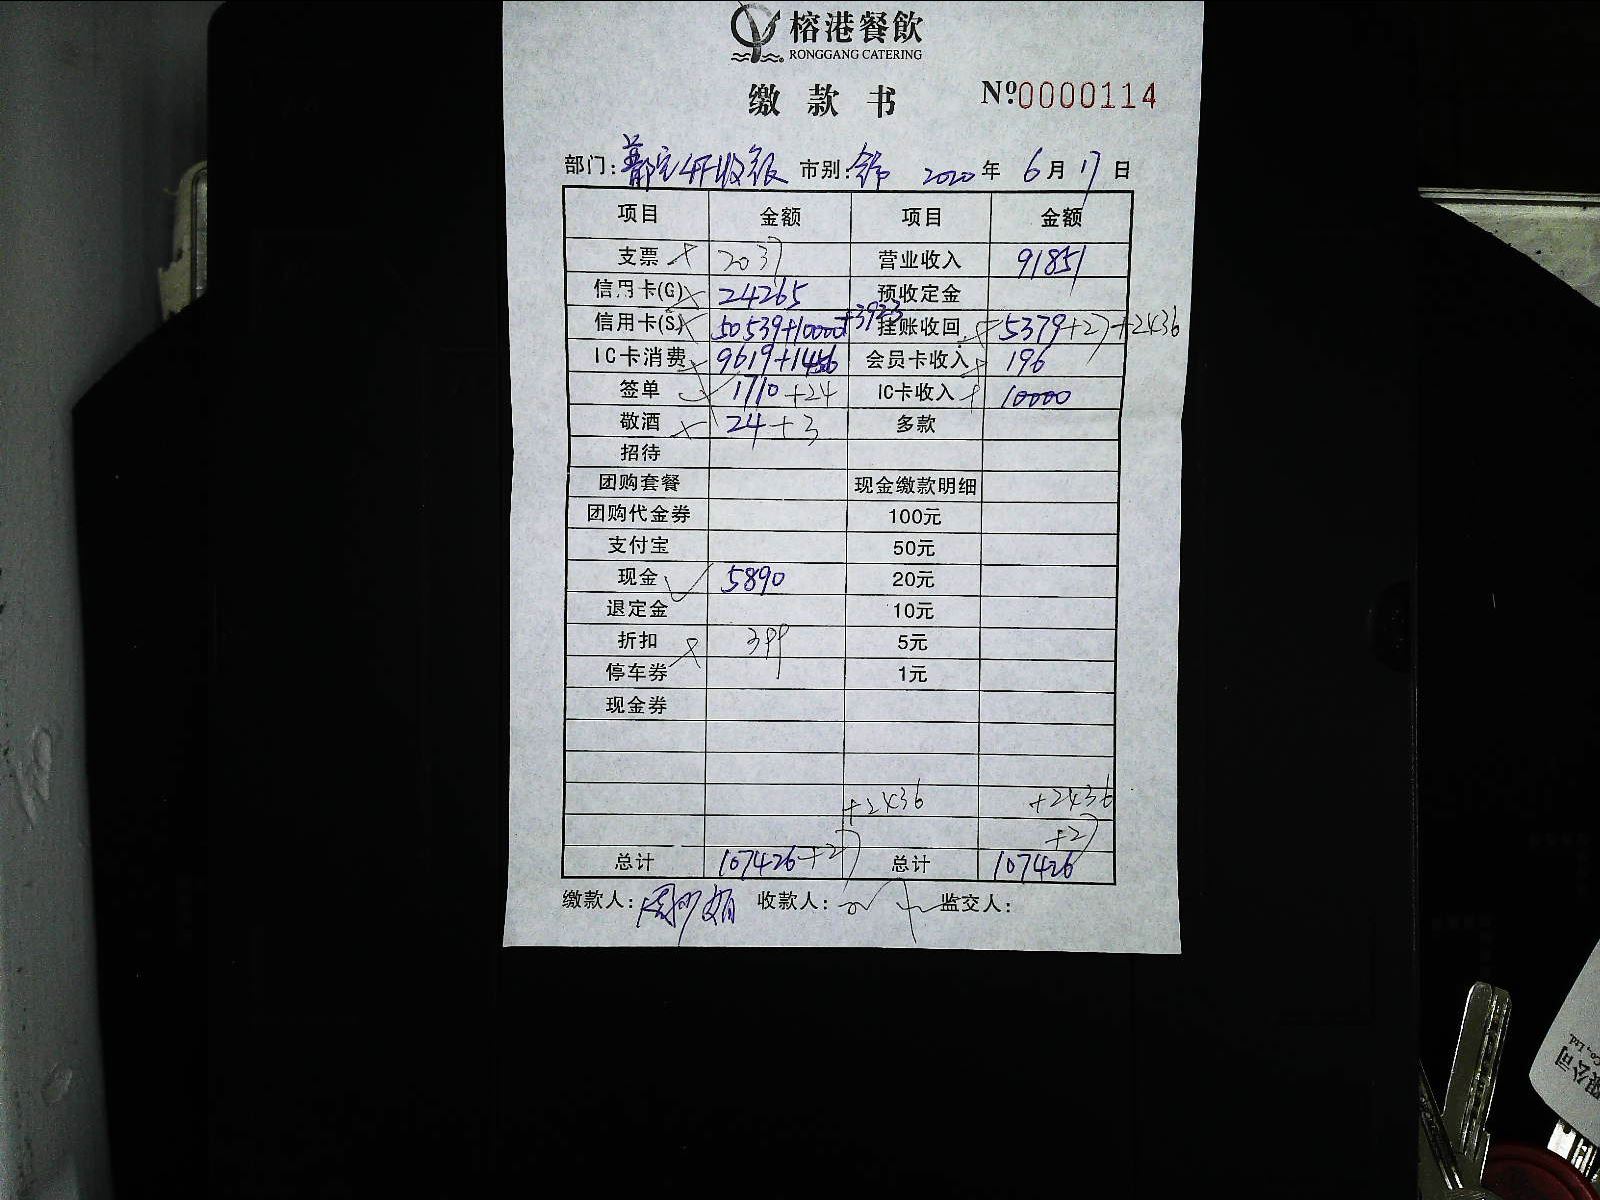 榕港餐飲
RONGGANG CATERING
缴款书 №0000114
部门: 市别: 2020年6月17日
项目 金额 项目 金额
支票 2037 营业收入 91851
信用卡(G) 24265 预收定金
信用卡(S) 50539+10000+3923 挂账收回 5379+27+2436
IC卡消费 9619+1456 会员卡收入 196
签单 1710+24 IC卡收入 10000
敬酒 24+3 多款
招待
团购套餐 现金缴款明细
团购代金券 100元
支付宝 50元
现金 5890 20元
退定金 10元
折扣 399 5元
停车券 1元
现金券
+2436 +2436
+27
总计 107426+27 总计 107426
缴款人: 收款人: 监交人:
限公司
Co., Ltd.